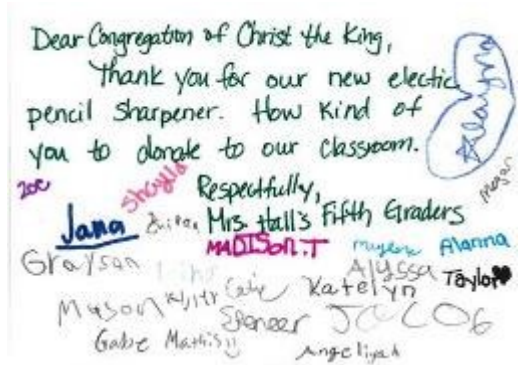 Dear Congregation of Christ the King,
Thank you for our new electic
pencil sharpener. How kind of
you to donate to our classroom.
Alayna
Respectfully,
Mrs. Hall's Fifth Graders
Zoe
Shaylla
Megan
Jana
MADISON.T
Alanna
Grayson
Alyssa
Taylor
Mason
Katelyn
Spencer
JaCOB
Gabe Mathis
Angeliyah